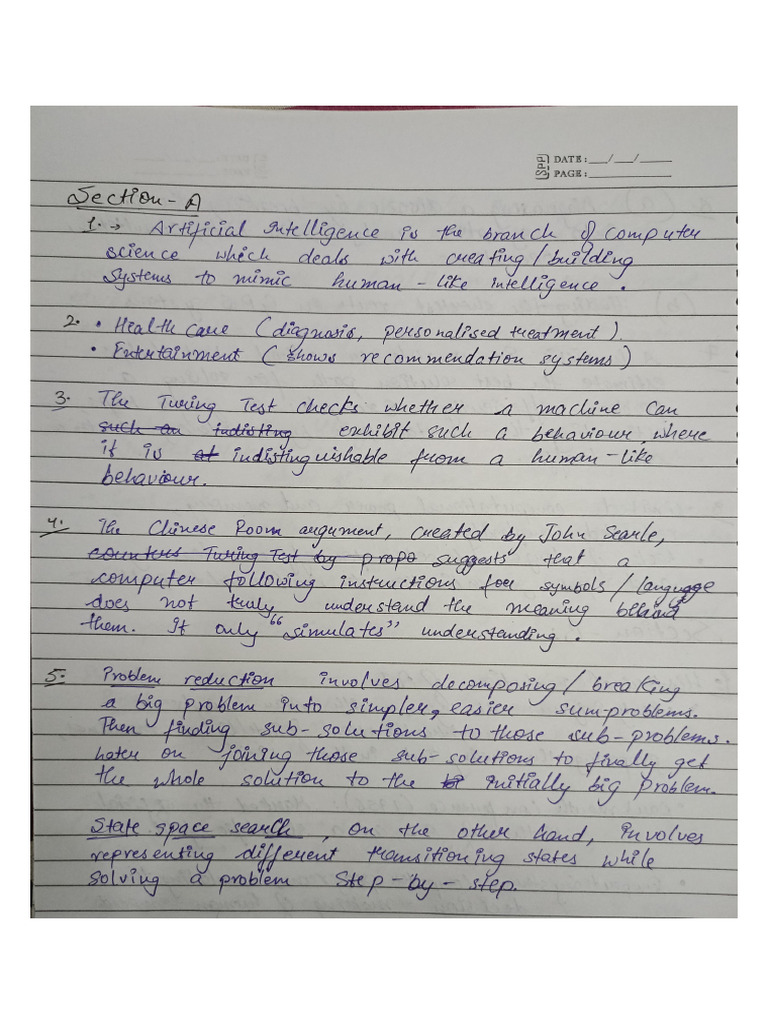 Spp DATE: __/__/____
PAGE: ________
Section - A
1. → Artificial Intelligence is the branch of computer
science which deals with creating/building
systems to mimic human-like intelligence.
2. • Healthcare (diagnosis, personalised treatment).
• Entertainment (shows recommendation systems)
3. The Turing Test checks whether a machine can
such an indisting exhibit such a behaviour, where
it is at indistinguishable from a human-like
behaviour.
4. The Chinese Room argument, created by John Searle,
counters Turing Test by propo suggests that a
computer following instructions for symbols/language
does not truly understand the meaning behind
them. It only "simulates" understanding.
5. Problem reduction involves decomposing/breaking
a big problem into simpler, easier sumproblems.
Then finding sub-solutions to those sub-problems.
Later on joining those sub-solutions to finally get
the whole solution to the initially big problem.
State space search, on the other hand, involves
representing different transitioning states while
solving a problem step-by-step.